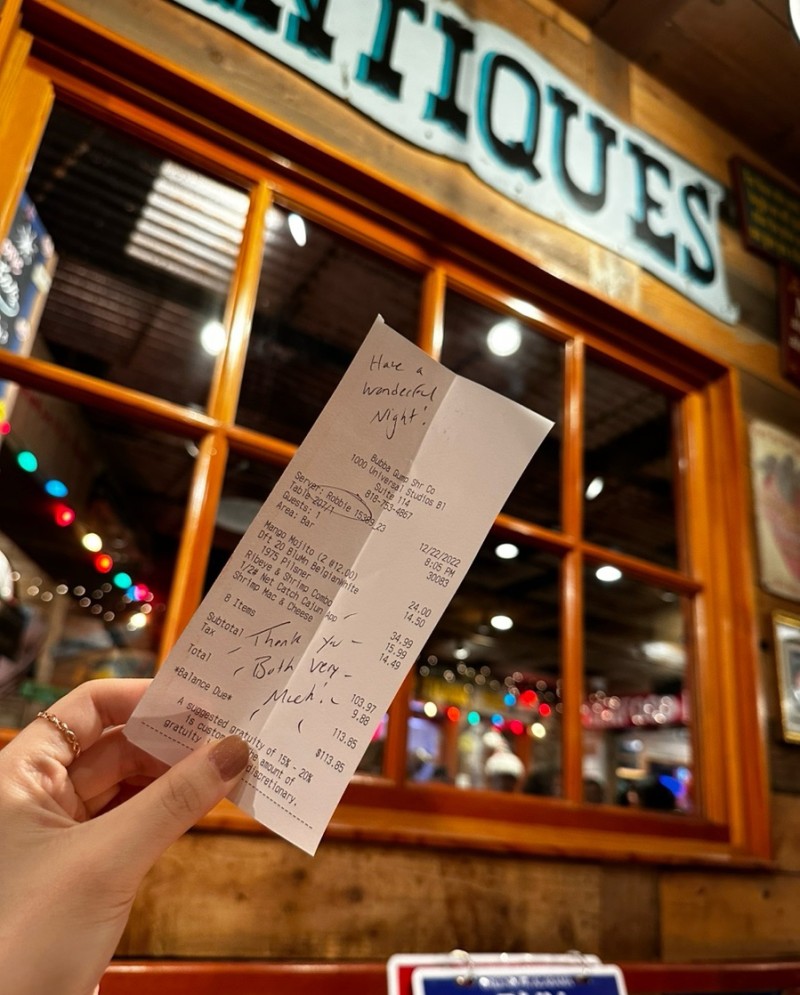 ANTIQUES
Have a
Wonderful
Night!
Bubba Gump Shr Co
1000 Universal Studios Bl
Suite 114
818-753-4867
Server: Robbie
12/22/2022
Table 207/1
8:05 PM
Guests: 1
30083
Area: Bar
Mango Mojito (2 @12.00) 24.00
Dft 20 BluMn BelgianWhite 14.50
1975 Pilsner
Ribeye & Shrimp Combo 34.99
1/2# Net Catch Cajun App 15.99
Shrimp Mac & Cheese 14.49
8 Items
Subtotal 103.97
Tax 9.88
Total 113.85
*Balance Due* $113.85
Thank you
Both Very
Much!
A suggested gratuity of 15% - 20%
is custom he amount of
gratuity discretionary.